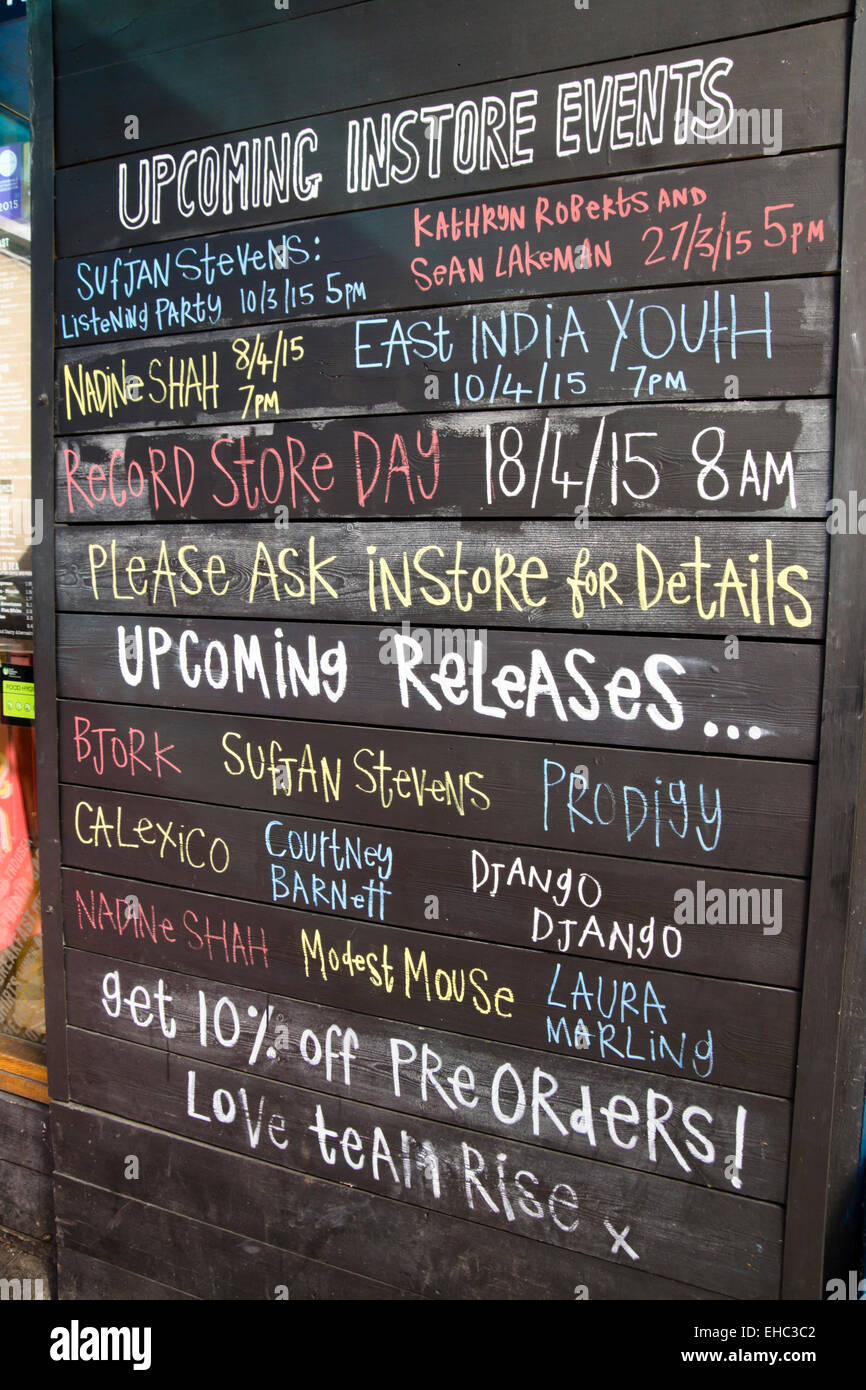 UPCOMING INSTORE EVENTS
SUFJAN STEVENS:
LISTENING PARTY 10/3/15 5PM
KATHRYN ROBERTS AND
SEAN LAKEMAN 27/3/15 5PM
NADINE SHAH 8/4/15
7PM
EAST INDIA YOUTH
10/4/15 7PM
RECORD STORE DAY 18/4/15 8AM
PLEASE ASK INSTORE for DETAILS
UPCOMING RELEASES...
BJORK SUFJAN STEVENS PRODIGY
CALEXICO COURTNEY
BARNETT
DJANGO
DJANGO
NADINE SHAH MODEST MOUSE LAURA
MARLING
get 10% off PREORDERS!
LOVE teAM RISE x
2015
FOOD HYGIENE
alamy
Image ID: EHC3C2
www.alamy.com